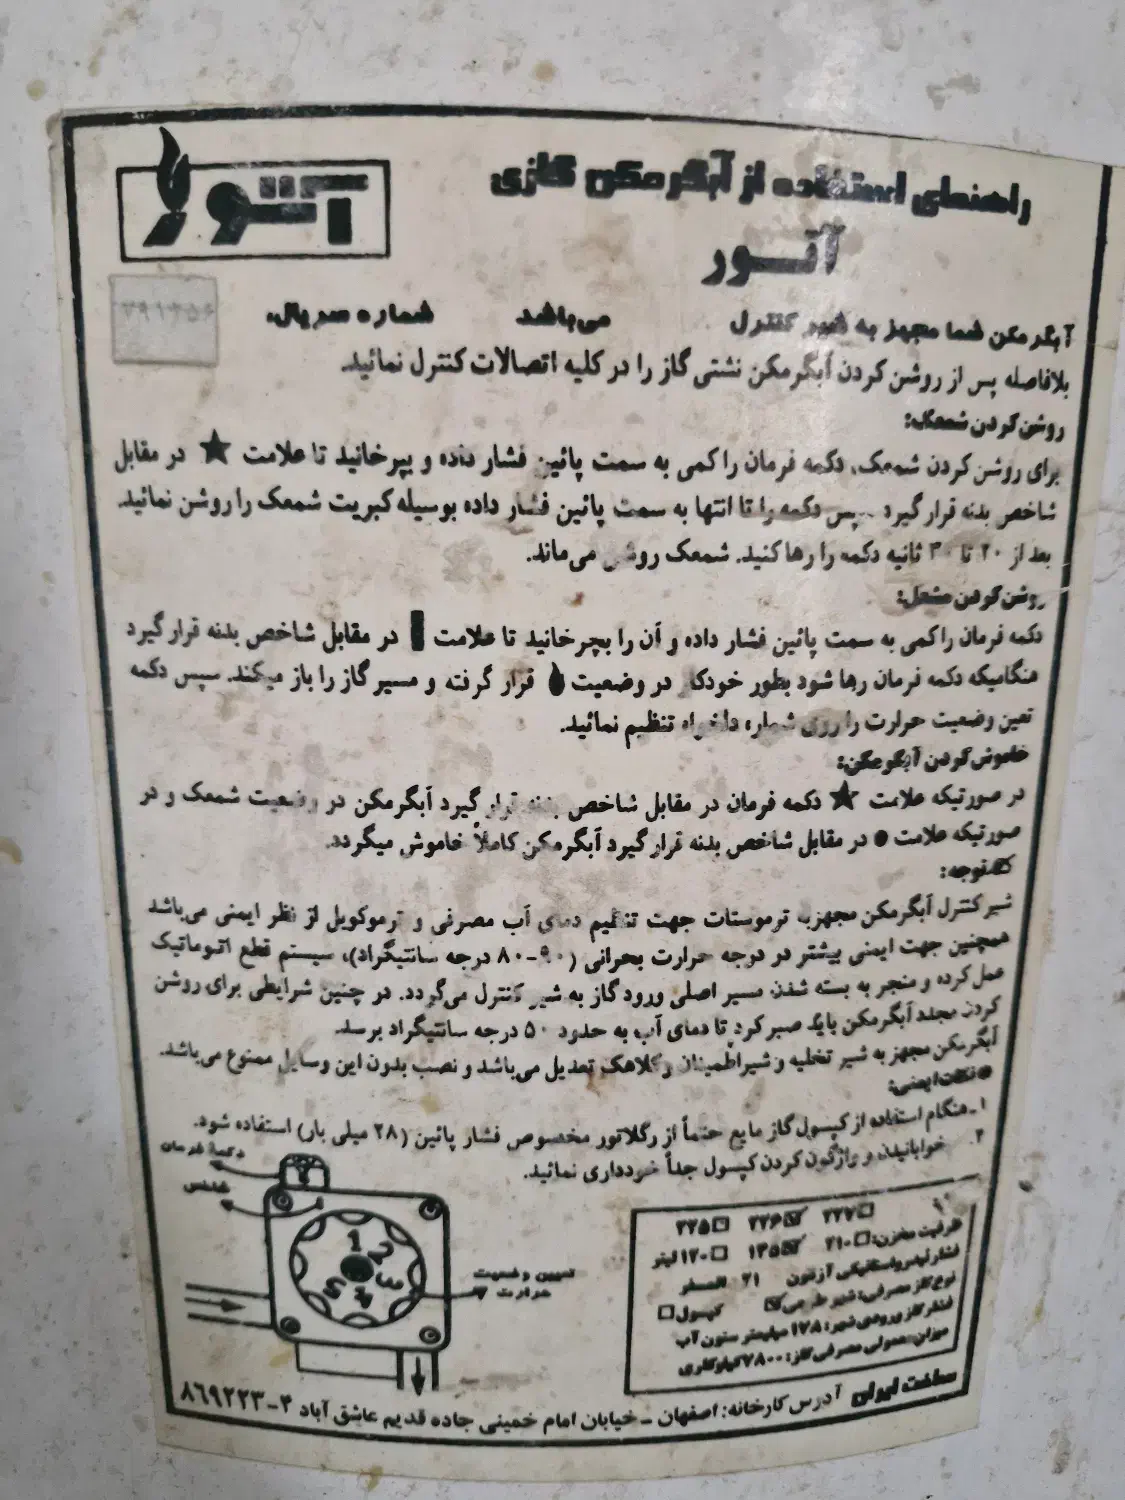 راهنمای استفاده از آبگرمکن گازی
آتور
آتور
آبگرمکن شما مجهز به شیر کنترل می‌باشد شماره سریال.
بلافاصله پس از روشن کردن آبگرمکن نشتی گاز را در کلیه اتصالات کنترل نمائید.
روشن کردن شمعک:
برای روشن کردن شمعک، دکمه فرمان را کمی به سمت پائین فشار داده و بپرخانید تا علامت ★ در مقابل
شاخص بدنه قرار گیرد سپس دکمه را تا انتها به سمت پائین فشار داده بوسیله کبریت شمعک را روشن نمائید.
بعد از ۲۰ تا ۳۰ ثانیه دکمه را رها کنید. شمعک روشن می‌ماند.
روشن کردن مشعل:
دکمه فرمان را کمی به سمت پائین فشار داده و آن را بچرخانید تا علامت در مقابل شاخص بدنه قرار گیرد
هنگامیکه دکمه فرمان رها شود بطور خودکار در وضعیت قرار گرفته و مسیر گاز را باز میکند. سپس دکمه
تعین وضعیت حرارت را روی شماره دلخواه تنظیم نمائید.
خاموش کردن آبگرمکن:
در صورتیکه علامت ★ دکمه فرمان در مقابل شاخص بدنه قرار گیرد آبگرمکن در وضعیت شمعک و در
صورتیکه علامت ● در مقابل شاخص بدنه قرار گیرد آبگرمکن کاملاً خاموش میگردد.
توجه:
شیر کنترل آبگرمکن مجهز به ترموستات جهت تنظیم دمای آب مصرفی و ترموکوپل از نظر ایمنی می‌باشد
همچنین جهت ایمنی بیشتر در درجه حرارت بحرانی (۹۰-۸۰ درجه سانتیگراد)، سیستم قطع اتوماتیک
عمل کرده و منجر به بسته شدن مسیر اصلی ورود گاز به شیر کنترل می‌گردد. در چنین شرایطی برای روشن
کردن مجدد آبگرمکن باید صبر کرد تا دمای آب به حدود ۵۰ درجه سانتیگراد برسد.
آبگرمکن مجهز به شیر تخلیه و شیر اطمینان و کلاهک تعدیل می‌باشد و نصب بدون این وسایل ممنوع می‌باشد.
●نکات ایمنی:
۱-هنگام استفاده از کپسول گاز مایع حتماً از رگلاتور مخصوص فشار پائین (۲۸ میلی بار) استفاده شود.
۲. خوابانیدن و واژگون کردن کپسول جداً خودداری نمائید.
دکمه فرمان
شاخص
1 2 3 4 5
تعیین وضعیت
حرارت
□۲۲۷ ☑۲۲۶ □۲۲۵
ظرفیت مخزن: □۲۱۰ ☑۱۳۵ □۱۲۰ لیتر
آزمون ۲۱
نوع گاز مصرفی: شهر ☑ کپسول □
فشار گاز ورودی شهر: ۱۷۸ میلیمتر ستون آب
میزان مصرفی گاز: ۷۸۰۰ کیلوکالری
ساخت ایران آدرس کارخانه: اصفهان - خیابان امام خمینی جاده قدیم عاشق آباد ۴-۸۶۹۲۲۳